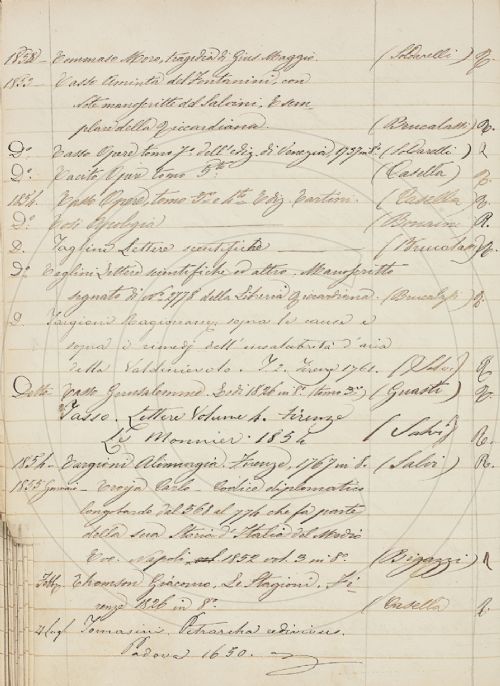 1838 — Tommaso Moro, tragedia di Gius. Maggio. (Soldarelli) R.
1853 — Tasso Aminta del Fontanini, con
Note manoscritte del Salvini, Esem-
plare della Riccardiana. (Brucalassi) R.
D.º Tasso Opere tomo 7.º dell'ediz. di Venezia, 1737 in 8.º (Soldarelli) R
D.º Tacito Opere tomo 5.º (Casella) R.
1854. Tasso Opere, tomo 3.º e 4.º Ediz. (Casella) R.
D.º Tedi Apologia ——— R.
D. Taglini Lettere scientifiche ——— (Brucalassi) R.
D.º Teglini Lettere scientifiche ed altro. Manoscritto
segnato di N.º 2778 della Libreria Riccardiana. (Brucalassi) R.
D. Targioni Ragionam. sopra le cause e
sopra i rimedj dell'insalubrità d'aria
della Valdinievole. T. 2. Firenze 1761. (Salvi) R.
Detto Tasso Gerusalemme. Ediz. 1826 in 8.º tomo 3.º (Guasti) R.
Tasso. Lettere Volume 4. Firenze
Le Monnier. 1854 (Salvi) R.
1854. — Targioni Alimurgia. Firenze, 1767 in 8. (Salvi) R.
1855 Gennaio — Troja Carlo. Codice diplomatico
longobardo dal 568 al 774 che fa parte
della sua Storia d'Italia del Medio
Evo. Napoli 1852 vol. 3 in 8.º (Bigazzi) R
Febb. Thomson Giacomo. Le Stagioni. Fi-
renze 1826 in 8.º (Casella) R.
Lugl. Tomasini, Petrarcha redivivus.
Padova 1650.